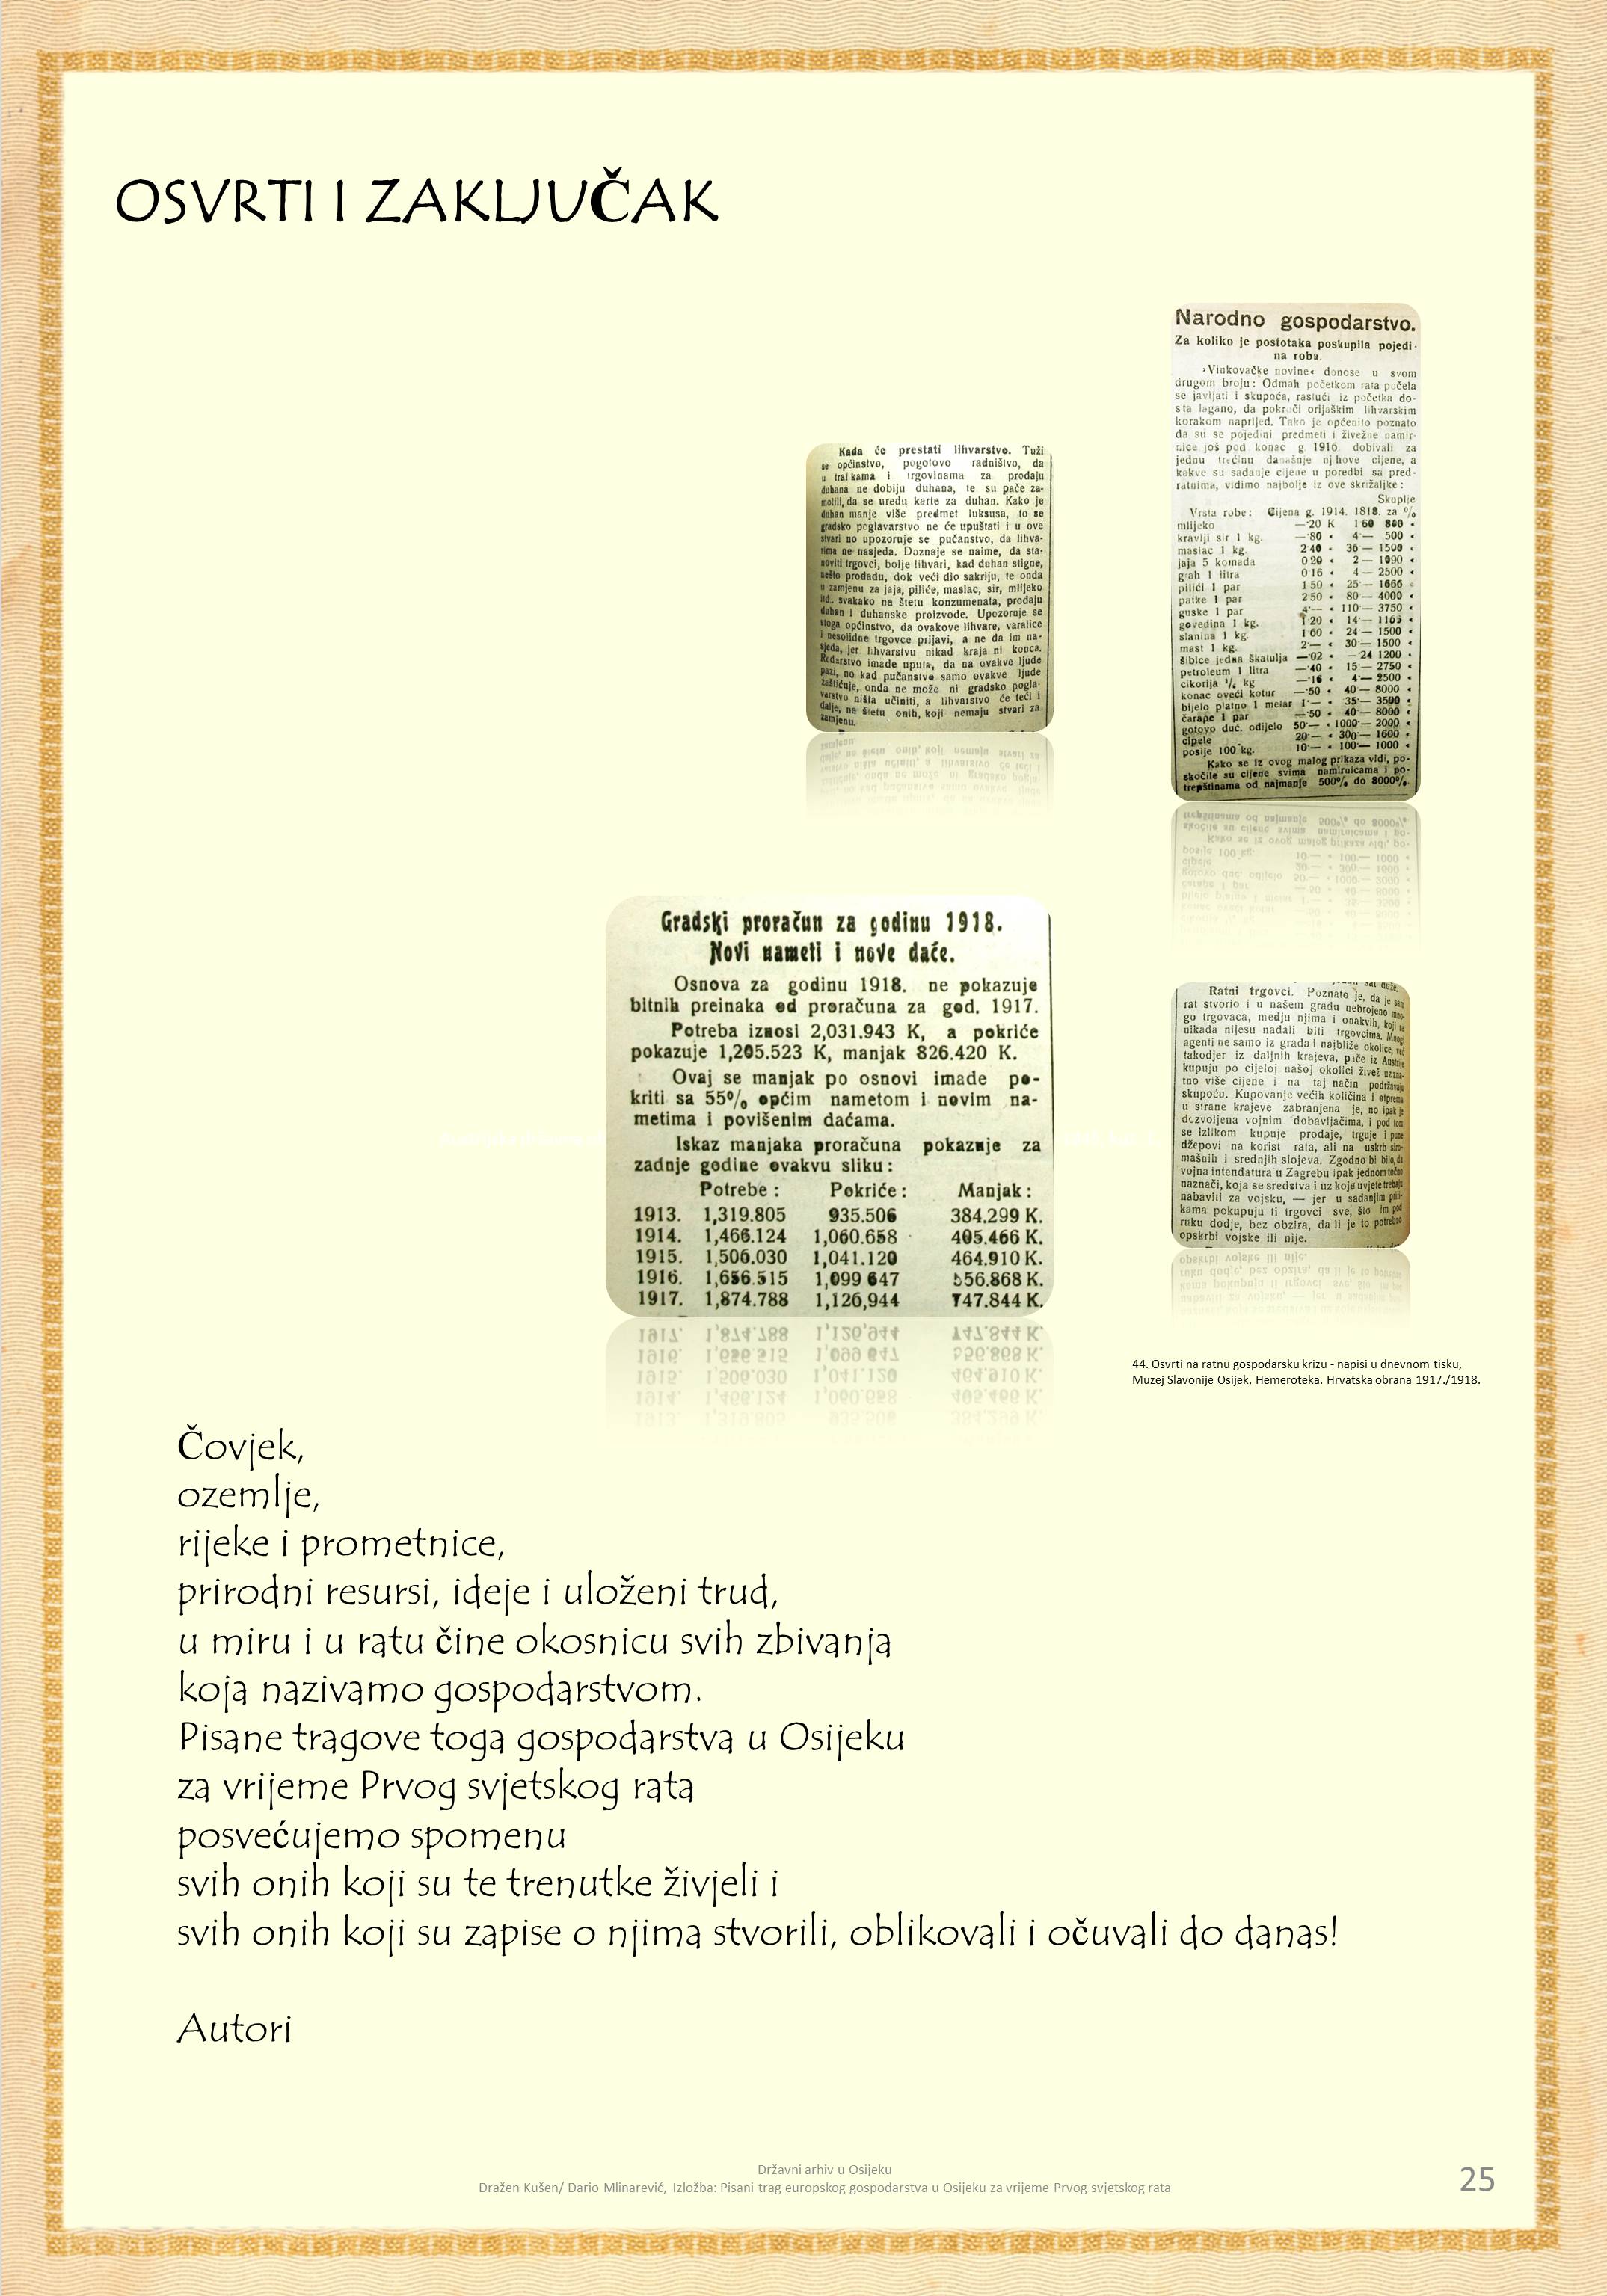 OSVRTI I ZAKLJUČAK
Narodno gospodarstvo.
Za koliko je postotaka poskupila pojedi-
na roba.
›Vinkovačke novine‹ donose u svom
drugom broju: Odmah početkom rata počela
se javljati i skupoća, rastući iz početka do-
sta lagano, da pokroči orijaškim lihvarskim
korakom naprijed. Tako je općenito poznato
da su se pojedini predmeti i živežne namir-
nice još pod konac g. 1916 dobivali za
jednu trećinu današnje njihove cijene, a
kakve su sadanje cijene u poredbi sa pred-
ratnima, vidimo najbolje iz ove skrižaljke:
Skuplje
Vrsta robe: Cijena g. 1914. 1818. za %
mlijeko —·20 K 1 60 800 «
kravlji sir 1 kg. —·80 « 4·— 500 «
maslac 1 kg. 2·40 « 36 — 1500 «
jaja 5 komada 0 20 « 2 — 1000 «
grah 1 litra 0 16 « 4 — 2500 «
pilići 1 par 1 50 « 25·— 1666 «
patke 1 par 2 50 « 80·— 4000 «
guske 1 par 4·— « 110·— 3750 «
govedina 1 kg. 1 20 « 14·— 1163 «
slanina 1 kg. 1 60 « 24·— 1500 «
mast 1 kg. 2·— « 30·— 1500 «
šibice jedna škatulja —·02 « —·24 1200 «
petroleum 1 litra —·40 « 15·— 2750 «
cikorija ¼ kg —·16 « 4·— 2500 «
konac oveći kotur —·50 « 40·— 8000 «
bijelo platno 1 metar 1·— « 35·— 3500 «
čarape 1 par —·50 « 40·— 8000 «
gotovo duć. odijelo 50·— « 1000·— 2000 «
cipele 20·— « 300·— 1600 «
posije 100 kg. 10·— « 100·— 1000 «
Kako se iz ovog malog prikaza vidi, po-
skočile su cijene svima namirnicama i po-
trepštinama od najmanje 500% do 8000%.
Kada će prestati lihvarstvo. Tuži
se općinstvo, pogotovo radništvo, da
u trafikama i trgovinama za prodaju
duhana ne dobiju duhana, te su pače za-
molili, da se uredu karte za duhan. Kako je
duhan manje više predmet luksusa, to se
gradsko poglavarstvo ne će upuštati i u ove
stvari no upozoruje se pučanstvo, da lihva-
rima ne nasjeda. Doznaje se naime, da sta-
noviti trgovci, bolje lihvari, kad duhan stigne,
nešto prodadu, dok veći dio sakriju, te onda
u zamjenu za jaja, piliće, maslac, sir, mlijeko
itd. svakako na štetu konzumenata, prodaju
duhan i duhanske proizvode. Upozoruje se
stoga općinstvo, da ovakove lihvare, varalice
i nesolidne trgovce prijavi, a ne da im na-
sjeda, jer lihvarstvu nikad kraja ni konca.
Redarstvo imade upute, da na ovakve ljude
pazi, no kad pučanstvo samo ovakve ljude
zaštićuje, onda ne može ni gradsko pogla-
varstvo ništa učiniti, a lihvarstvo će teći i
dalje, na štetu onih, koji nemaju stvari za
zamjenu.
Gradski proračun za godinu 1918.
Novi nameti i nove daće.
Osnova za godinu 1918. ne pokazuje
bitnih preinaka od proračuna za god. 1917.
Potreba iznosi 2,031.943 K, a pokriće
pokazuje 1,205.523 K, manjak 826.420 K.
Ovaj se manjak po osnovi imade po-
kriti sa 55% općim nametom i novim na-
metima i povišenim daćama.
Iskaz manjaka proračuna pokazuje za
zadnje godine ovakvu sliku:
Potrebe: Pokriće: Manjak:
1913. 1,319.805 935.506 384.299 K.
1914. 1,466.124 1,060.658 405.466 K.
1915. 1,506.030 1,041.120 464.910 K.
1916. 1,656.515 1,099 647 556.868 K.
1917. 1,874.788 1,126,944 747.844 K.
Ratni trgovci. Poznato je, da je sam
rat stvorio i u našem gradu nebrojeno mno-
go trgovaca, medju njima i onakvih, koji se
nikada nijesu nadali biti trgovcima. Mnogi
agenti ne samo iz grada i najbliže okolice, već
takodjer iz daljnih krajeva, pače iz Austrije
kupuju po cijeloj našoj okolici živež uz zna-
tno više cijene i na taj način podržavaju
skupoću. Kupovanje većih količina i otprema
u strane krajeve zabranjena je, no ipak je
dozvoljena vojnim dobavljačima, i pod tom
se izlikom kupuje prodaje, trguje i pune
džepovi na korist rata, ali na uskrb siro-
mašnih i srednjih slojeva. Zgodno bi bilo, da
vojna intendatura u Zagrebu ipak jednom točno
naznači, koja se sredstva i uz koje uvjete trebaju
nabaviti za vojsku, — jer u sadanjim prili-
kama pokupuju ti trgovci sve, što im pod
ruku dodje, bez obzira, da li je to potrebno
opskrbi vojske ili nije.
44. Osvrti na ratnu gospodarsku krizu - napisi u dnevnom tisku,
Muzej Slavonije Osijek, Hemeroteka. Hrvatska obrana 1917./1918.
Čovjek,
ozemlje,
rijeke i prometnice,
prirodni resursi, ideje i uloženi trud,
u miru i u ratu čine okosnicu svih zbivanja
koja nazivamo gospodarstvom.
Pisane tragove toga gospodarstva u Osijeku
za vrijeme Prvog svjetskog rata
posvećujemo spomenu
svih onih koji su te trenutke živjeli i
svih onih koji su zapise o njima stvorili, oblikovali i očuvali do danas!
Autori
Državni arhiv u Osijeku
Dražen Kušen/ Dario Mlinarević, Izložba: Pisani trag europskog gospodarstva u Osijeku za vrijeme Prvog svjetskog rata
25